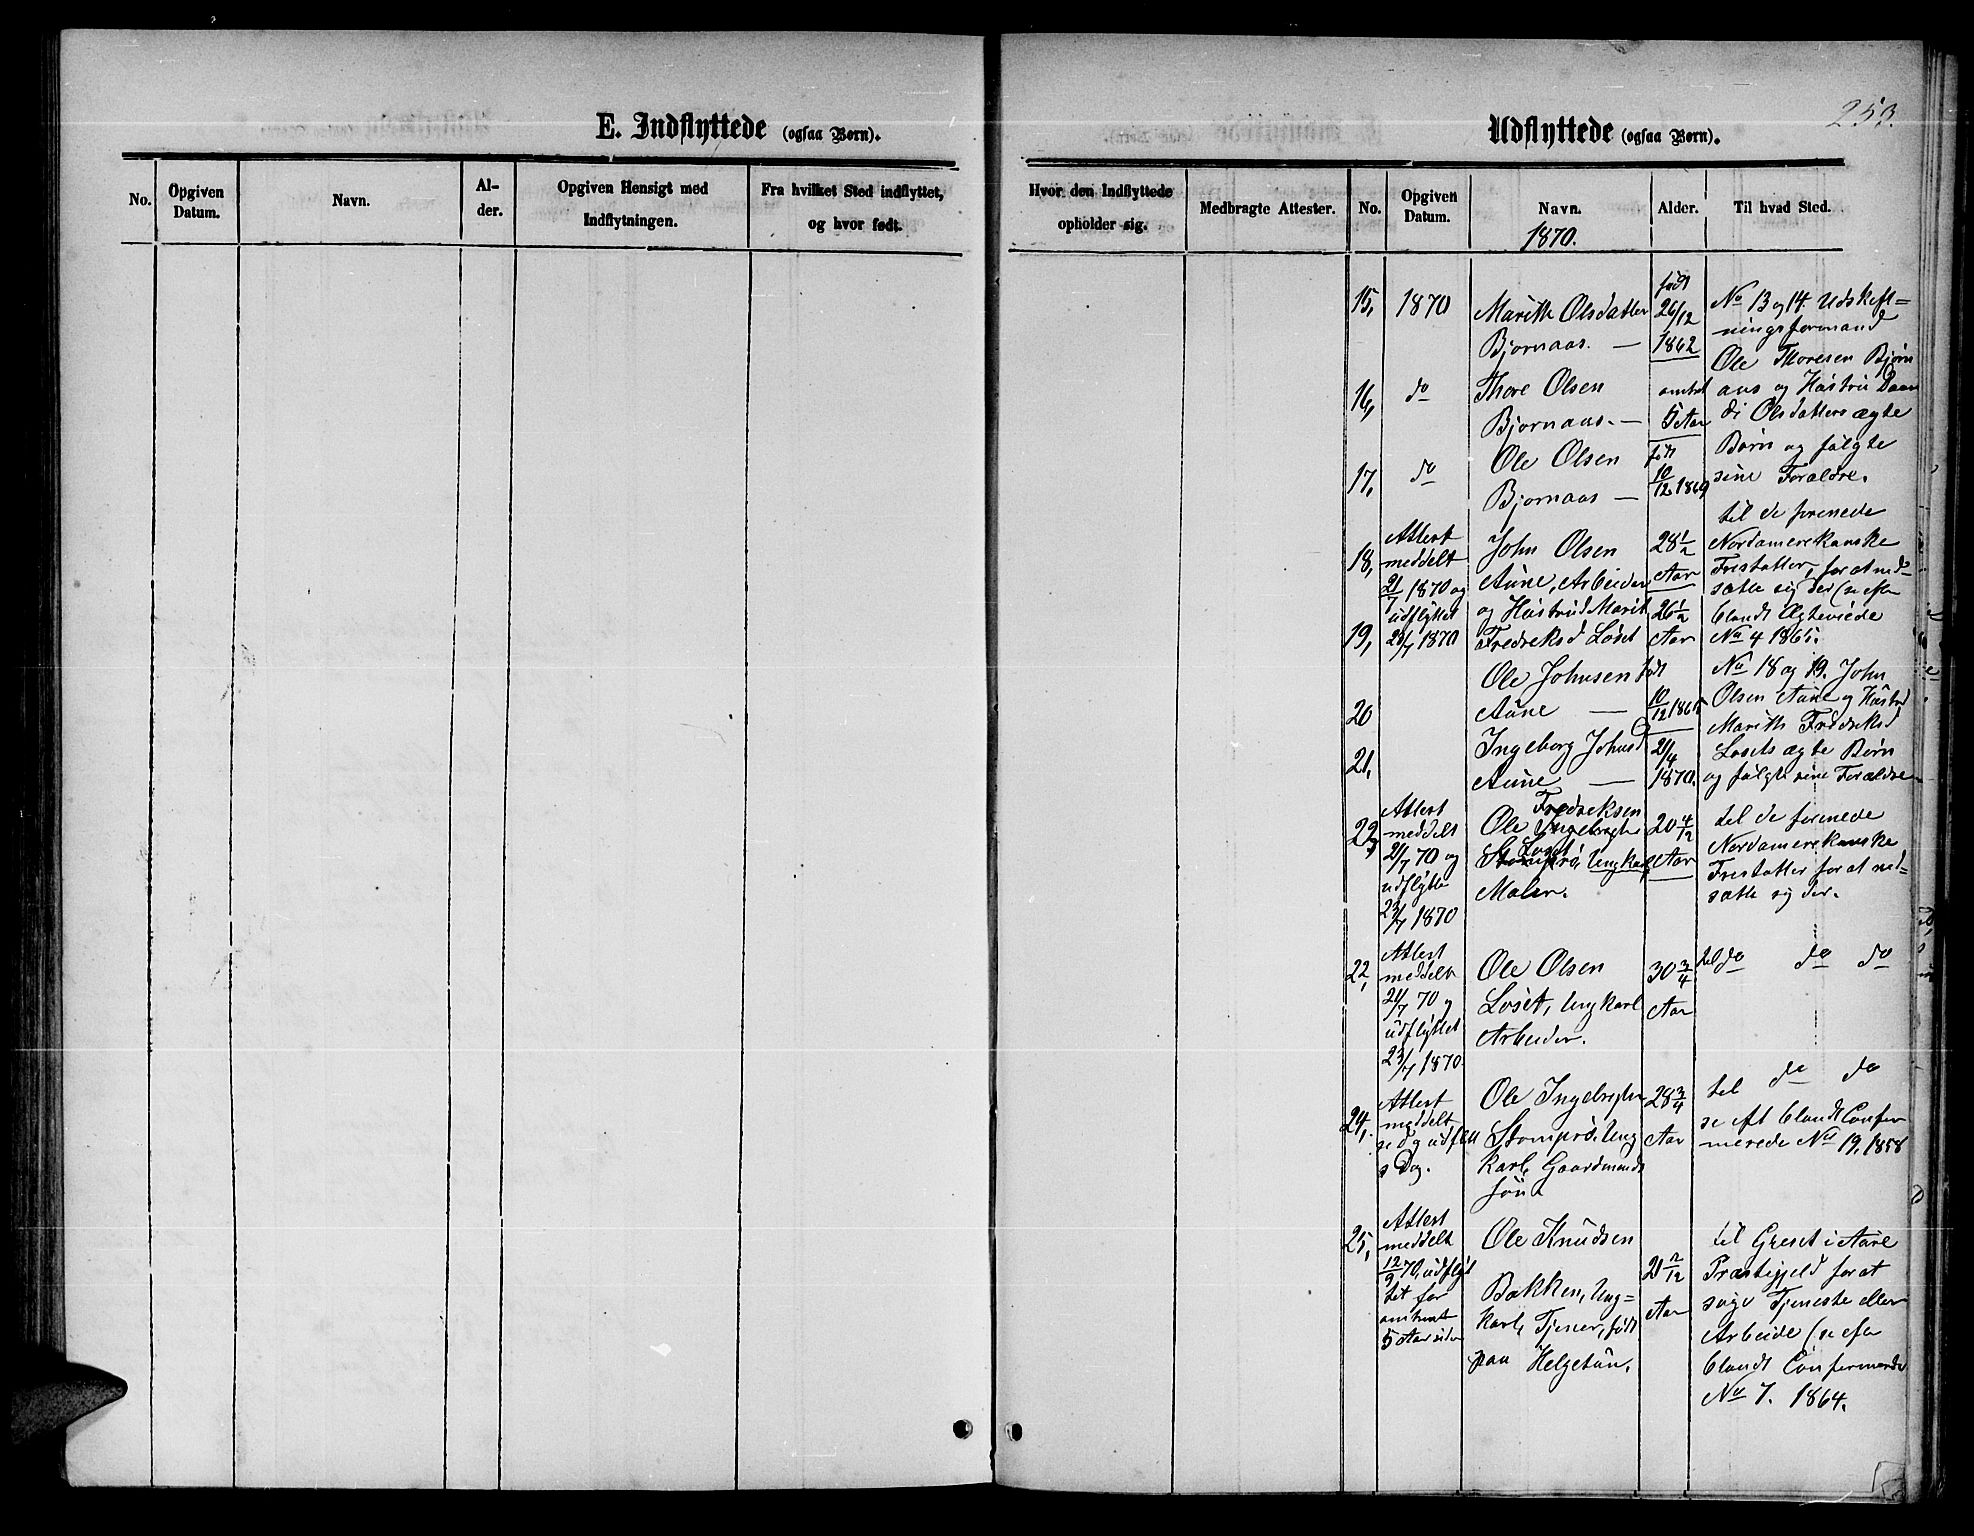 253.
E. Indflyttede (ogsaa Børn).
No.
Opgiven
Datum.
Navn.
Al-
der.
Opgiven Hensigt med
Indflytningen.
Fra hvilket Sted indflyttet,
og hvor født.
Hvor den Indflyttede
opholder sig.
Medbragte Attester.
Udflyttede (ogsaa Børn).
No.
Opgiven
Datum.
Navn.
Alder.
Til hvad Sted.
1870.
15,
1870
Marith Olsdatter
Bjørnaas. —
født
26/12
1862
No 13 og 14. Udskift=
ningsformand
Ole Thoresen Bjørn
aas og Hustru
Olsdatters ægte
Børn og fulgte
sine Forældre.
16,
do
Thore Olsen
Bjørnaas. —
omtret
5 Aar
17,
do
Ole Olsen
Bjørnaas —
født
10/12 1869
18,
Attest
meddelt
21/7 1870 og
udflyttet
23/7 1870
John Olsen
Aune, Arbeider
og Hustrud Marit
Fredriksd Løset
28 1/2
Aar
19,
26 1/2
Aar
til de forenede
Nordamerekanske
Fristatter, for at ned-
sætte sig der (se efter
blandt Ægteviede
No 4 1865.
20
Ole Johnsen
Aune —
født
10/12 1865
No 18 og 19. John
Olsen Aune og Hustrd
Marith Fredriksd
Løsets ægte Børn
og fulgte sine Forældre
21,
Ingeborg Johnsd
Aune —
21/4
1870.
22,
Attest
meddelt
21/7 70 og
udflytte
23/7 1870
Fredriksen
Ole Ingebrigts
Løset
Stomprø, Ungkarl,
Maler.
20 4/12
Aar
til de forenede
Nordamerekanske
Fristatter for at ned=
sætte sig der.
22,
Attest
meddelt
21/7 70 og
udflyttet
23/7 1870.
Ole Olsen
Løset, Ungkarl
Arbeider.
30 3/4
Aar
til do do do
24,
Attest
meddelt
s D og udfltt
s Dag.
Ole Ingebrigtsn
Stomprø. Ung
karl, Gaardmands
søn.
28 3/4
Aar
til do do
se eft blandt Confir
merede No 19, 1858
25,
Attest
meddelt
12/9 70, udflyt
tet for
omtrent
5 Aar siden
Ole Knudsen
Bakken, Ung=
karl, Tjener, født
paa Helgetun.
21 2/12
Aar
til Greset i Aure
Præstegjeld for at
søge Tjeneste eller
Arbeide (se efter
blandt Confirmerede
No 7. 1864.